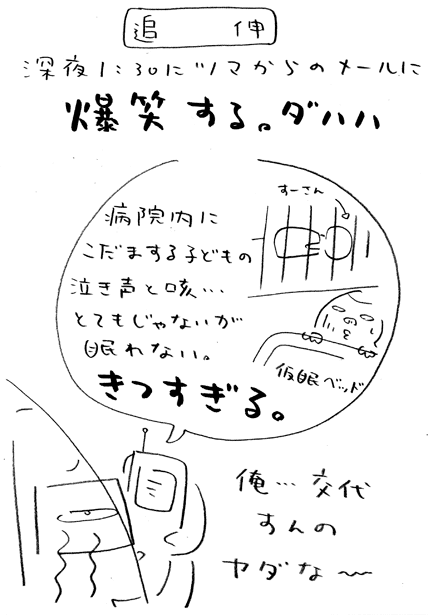 追伸
深夜1:30にツマからのメールに
爆笑する。ダハハ
すーさん
病院内に
こだまする子どもの
泣き声と咳…
とてもじゃないが
眠れない。
きつすぎる。
仮眠ベッド
俺…交代
すんの
ヤダな〜